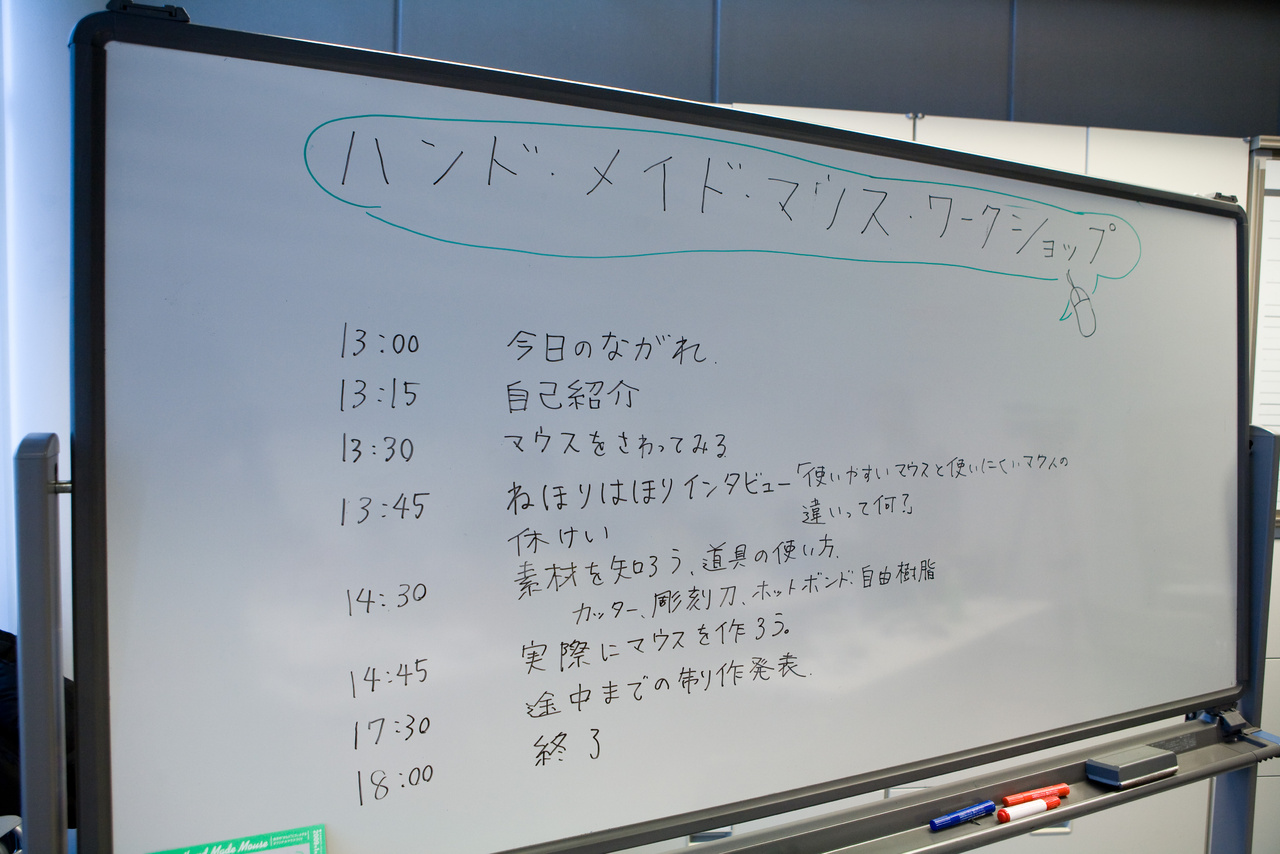 ハンド・メイド・マウス・ワークショップ
13:00 今日のながれ.
13:15 自己紹介
13:30 マウスをさわってみる
13:45 ねほりはほりインタビュー「使いやすいマウスと使いにくいマウスの
違いって何?」
休けい
14:30 素材を知ろう、道具の使い方.
カッター、彫刻刀、ホットボンド、自由樹脂
14:45 実際にマウスを作ろう。
17:30 途中までの制作発表.
18:00 終了
Made Mouse